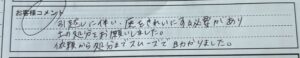 お客様コメント
引越しに伴い、庭をきれいにする必要があり
土の処分をお願いしました。
依頼から処分までスムーズで助かりました。